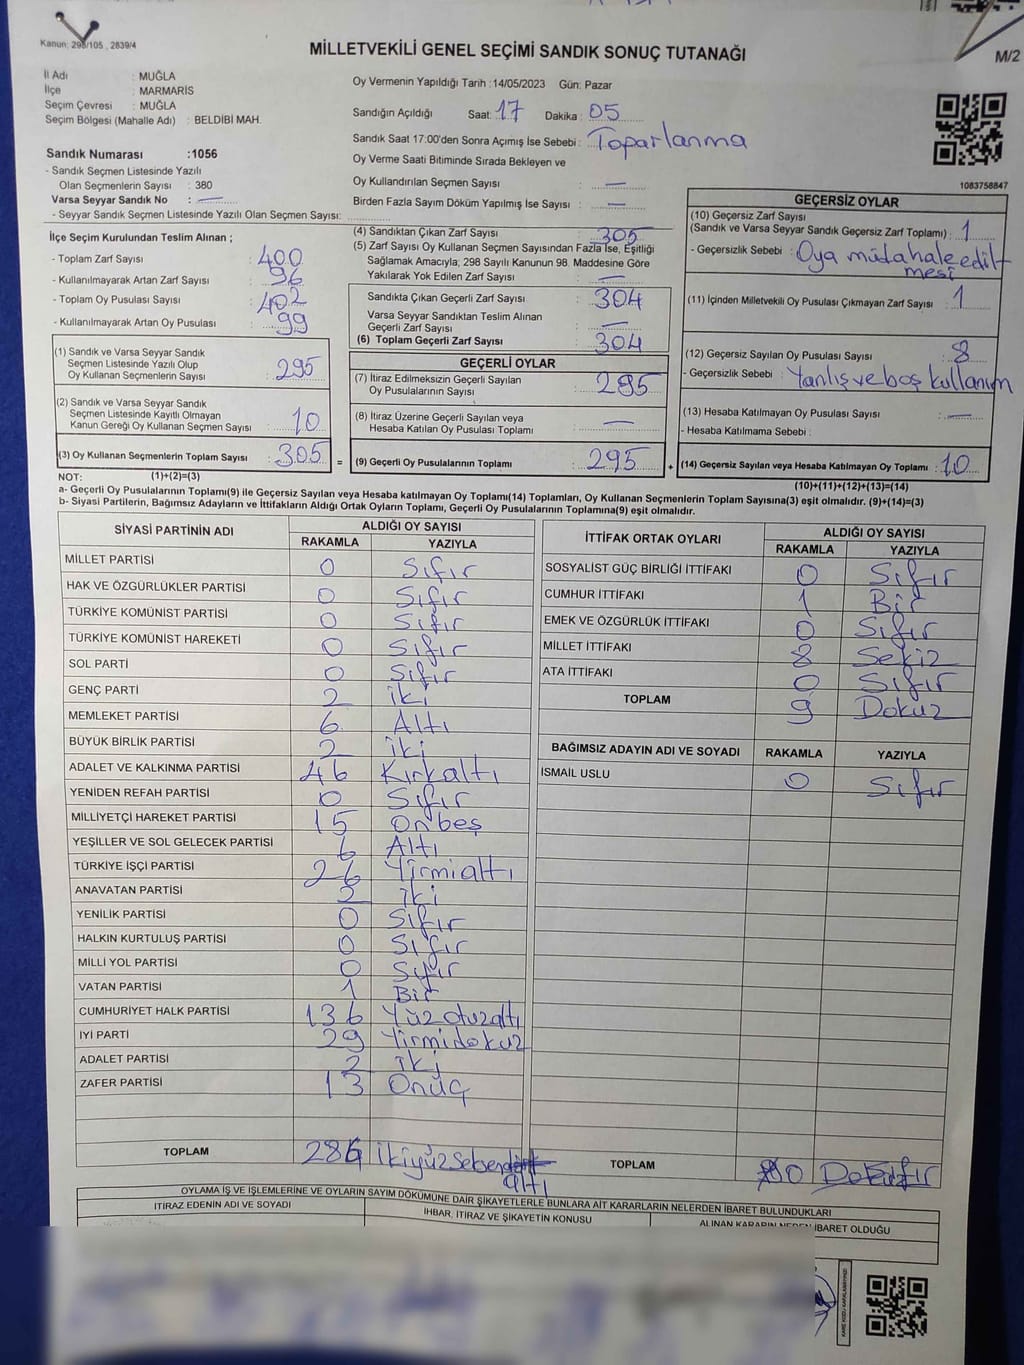 Kanun: 298/105 , 2839/4
MİLLETVEKİLİ GENEL SEÇİMİ SANDIK SONUÇ TUTANAĞI
M/2
İl Adı : MUĞLA
İlçe : MARMARİS
Seçim Çevresi : MUĞLA
Seçim Bölgesi (Mahalle Adı) : BELDİBİ MAH.
Sandık Numarası :1056
- Sandık Seçmen Listesinde Yazılı
Olan Seçmenlerin Sayısı : 380
Varsa Seyyar Sandık No : —
- Seyyar Sandık Seçmen Listesinde Yazılı Olan Seçmen Sayısı:
Oy Vermenin Yapıldığı Tarih :14/05/2023 Gün: Pazar
Sandığın Açıldığı Saat: 17 Dakika : 05
Sandık Saat 17:00'den Sonra Açımış İse Sebebi : Toparlanma
Oy Verme Saati Bitiminde Sırada Bekleyen ve
Oy Kullandırılan Seçmen Sayısı : —
Birden Fazla Sayım Döküm Yapılmış İse Sayısı : —
1083758847
İlçe Seçim Kurulundan Teslim Alınan ;
- Toplam Zarf Sayısı : 400
- Kullanılmayarak Artan Zarf Sayısı : 96
- Toplam Oy Pusulası Sayısı : 402
- Kullanılmayarak Artan Oy Pusulası : 99
(1) Sandık ve Varsa Seyyar Sandık
Seçmen Listesinde Yazılı Olup
Oy Kullanan Seçmenlerin Sayısı : 295
(2) Sandık ve Varsa Seyyar Sandık
Seçmen Listesinde Kayıtlı Olmayan
Kanun Gereği Oy Kullanan Seçmen Sayısı : 10
(3) Oy Kullanan Seçmenlerin Toplam Sayısı : 305 =
(4) Sandıktan Çıkan Zarf Sayısı : 305
(5) Zarf Sayısı Oy Kullanan Seçmen Sayısından Fazla İse, Eşitliği
Sağlamak Amacıyla; 298 Sayılı Kanunun 98. Maddesine Göre
Yakılarak Yok Edilen Zarf Sayısı : —
Sandıkta Çıkan Geçerli Zarf Sayısı : 304
Varsa Seyyar Sandıktan Teslim Alınan
Geçerli Zarf Sayısı : —
(6) Toplam Geçerli Zarf Sayısı : 304
GEÇERLİ OYLAR
(7) İtiraz Edilmeksizin Geçerli Sayılan
Oy Pusulalarının Sayısı : 295
(8) İtiraz Üzerine Geçerli Sayılan veya
Hesaba Katılan Oy Pusulası Toplamı : —
(9) Geçerli Oy Pusulalarının Toplamı : 295 +
GEÇERSİZ OYLAR
(10) Geçersiz Zarf Sayısı
(Sandık ve Varsa Seyyar Sandık Geçersiz Zarf Toplamı) : 1
- Geçersizlik Sebebi : Oya müdahale edil
mesi
(11) İçinden Milletvekili Oy Pusulası Çıkmayan Zarf Sayısı : 1
(12) Geçersiz Sayılan Oy Pusulası Sayısı : 8
- Geçersizlik Sebebi : Yanlış ve boş kullanım
(13) Hesaba Katılmayan Oy Pusulası Sayısı : —
- Hesaba Katılmama Sebebi :
(14) Geçersiz Sayılan veya Hesaba Katılmayan Oy Toplamı : 10
NOT: (1)+(2)=(3)
(10)+(11)+(12)+(13)=(14)
a- Geçerli Oy Pusulalarının Toplamı(9) ile Geçersiz Sayılan veya Hesaba katılmayan Oy Toplamı(14) Toplamları, Oy Kullanan Seçmenlerin Toplam Sayısına(3) eşit olmalıdır. (9)+(14)=(3)
b- Siyasi Partilerin, Bağımsız Adayların ve İttifakların Aldığı Ortak Oyların Toplamı, Geçerli Oy Pusulalarının Toplamına(9) eşit olmalıdır.
SİYASİ PARTİNİN ADI ALDIĞI OY SAYISI
RAKAMLA YAZIYLA
MİLLET PARTİSİ 0 Sıfır
HAK VE ÖZGÜRLÜKLER PARTİSİ 0 Sıfır
TÜRKİYE KOMÜNİST PARTİSİ 0 Sıfır
TÜRKİYE KOMÜNİST HAREKETİ 0 Sıfır
SOL PARTİ 0 Sıfır
GENÇ PARTİ 2 iki
MEMLEKET PARTİSİ 6 Altı
BÜYÜK BİRLİK PARTİSİ 2 iki
ADALET VE KALKINMA PARTİSİ 46 Kırkaltı
YENİDEN REFAH PARTİSİ 0 Sıfır
MİLLİYETÇİ HAREKET PARTİSİ 15 Onbeş
YEŞİLLER VE SOL GELECEK PARTİSİ 6 Altı
TÜRKİYE İŞÇİ PARTİSİ 26 Yirmialtı
ANAVATAN PARTİSİ 2 iki
YENİLİK PARTİSİ 0 Sıfır
HALKIN KURTULUŞ PARTİSİ 0 Sıfır
MİLLİ YOL PARTİSİ 0 Sıfır
VATAN PARTİSİ 1 Bir
CUMHURİYET HALK PARTİSİ 136 Yüzotuzaltı
İYİ PARTİ 29 Yirmidokuz
ADALET PARTİSİ 2 iki
ZAFER PARTİSİ 13 Onüç
TOPLAM 286
altı
İTTİFAK ORTAK OYLARI ALDIĞI OY SAYISI
RAKAMLA YAZIYLA
SOSYALİST GÜÇ BİRLİĞİ İTTİFAKI 0 Sıfır
CUMHUR İTTİFAKI 1 Bir
EMEK VE ÖZGÜRLÜK İTTİFAKI 0 Sıfır
MİLLET İTTİFAKI 8 Sekiz
ATA İTTİFAKI 0 Sıfır
TOPLAM 9 Dokuz
BAĞIMSIZ ADAYIN ADI VE SOYADI RAKAMLA YAZIYLA
İSMAİL USLU 0 Sıfır
TOPLAM 0
OYLAMA İŞ VE İŞLEMLERİNE VE OYLARIN SAYIM DÖKÜMÜNE DAİR ŞİKAYETLERLE BUNLARA AİT KARARLARIN NELERDEN İBARET BULUNDUKLARI
İTİRAZ EDENİN ADI VE SOYADI
İHBAR, İTİRAZ VE ŞİKAYETİN KONUSU
ALINAN KARARIN NEDEN İBARET OLDUĞU